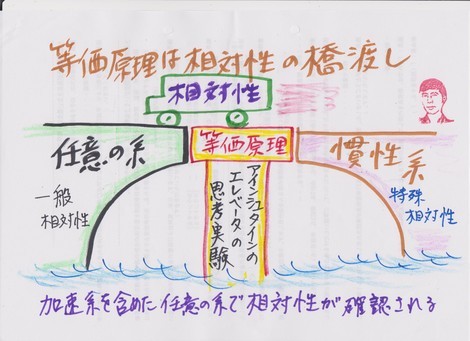 等価原理は相対性の橋渡し
相対性
任意の系
等価原理
慣性系
一般
相対性
アインシュタインの
エレベータの
思考実験
特殊
相対性
加速系を含めた任意の系で相対性が確認される